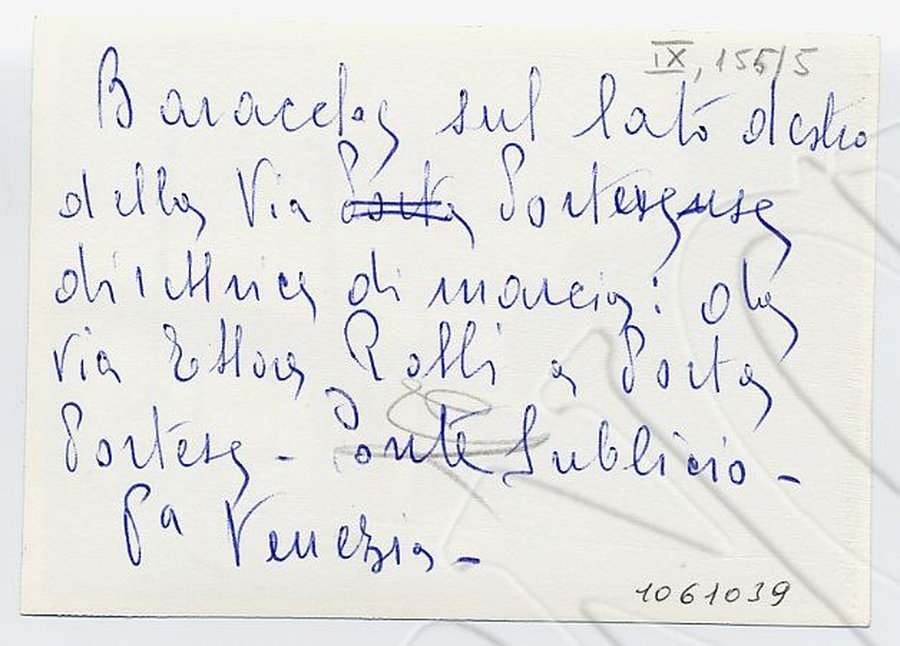 IX, 155/5
Baracche sul lato destro
della Via Porta Portuense
direttrice di marcia: da
via Ettore Rolli a Porta
Portese - Ponte Sublicio -
Pa Venezia -
1061039